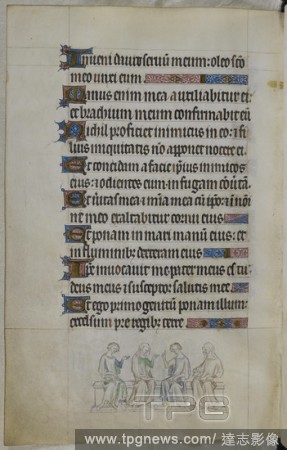 Inveni david servum meum: oleo sco
meo unxi eum
Manus enim mea auxiliabitur ei:
et brachium meum confirmabit eu
Nichil proficiet inimicus in eo: & fi
lius iniquitatis no apponet nocere ei
Et concidam a facie ipius inimicos
eius: & odientes eum in fugam co
Et veritas mea & mia mea cu ipo: & in no
ine meo exaltabitur cornu eius
Et ponam in mari manu eius: et
in fluminibz dexteram eius
Ipe invocavit me pater meus es tu:
deus meus & susceptor salutis mee
Et ego primogenitu ponam illum:
excelsum pre regibz terre
TPG
www.tpgnews.com / 達志影像